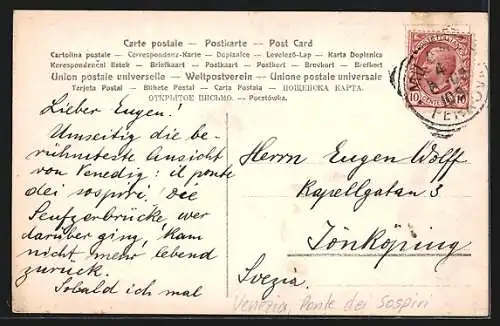 Carte postale — Postkarte — Post Card
Cartolina postale — Correspondenz-Karte — Dopisnice — Levelező-Lap — Karta Dopisnica
Korespondenční listek — Briefkaart — Postkaart — Postkort — Brevkort — Brefkort
Union postale universelle — Weltpostverein — Unione postale universale
Tarjeta Postal — Bilhete Postal — Carta Postala — ПОЩЕНСКА КАРТА.
ОТКРЫТОЕ ПИСЬМО. — Pocztówka.
Lieber Eugen!
Umseitig die be-
rühmteste Ansicht
von Venedig: il ponte
dei sospiri, die
Seufzerbrücke wer
darüber ging, kam
nicht mehr lebend
zurück.
Sobald ich mal
POSTE ITALIANE
10 CENT. 10
Herrn Eugen Wolff
Kapellgatan 3
Jönköping
Svezia.
Venezia, Ponte dei Sospiri